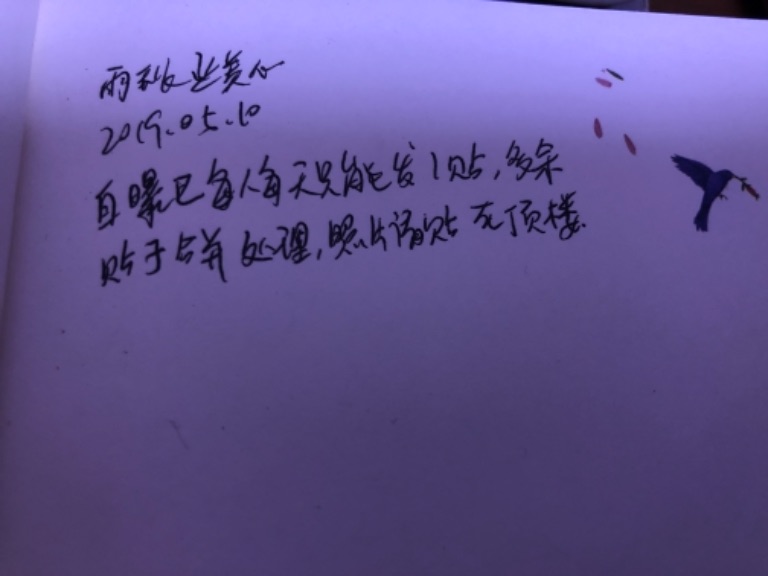 雨和业美心
2019.05.10
自曝巴每人每天只能发1贴,多余
贴于合并处理,照片请贴在顶楼.